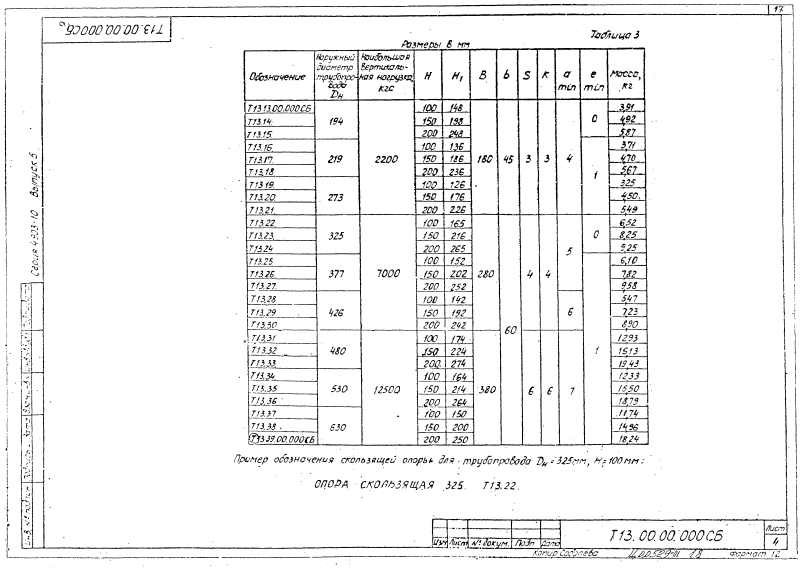 17
Т13.00.00.000СБ
Таблица 3
Размеры в мм
Обозначение | Наружный диаметр трубопровода Dн | Наибольшая вертикальная нагрузка, кгс | H | H1 | B | b | S | K | a min | e min | Масса, кг
Т13.13.00.000СБ | 194 | 2200 | 100 | 148 | 180 | 45 | 3 | 3 | 4 | 0 | 3,91
Т13.14. | 150 | 198 | 4,92
Т13.15. | 200 | 248 | 5,87
Т13.16. | 219 | 100 | 136 | 1 | 3,71
Т13.17. | 150 | 186 | 4,70
Т13.18. | 200 | 236 | 5,67
Т13.19. | 273 | 100 | 126 | 3,25
Т13.20. | 150 | 176 | 4,50
Т13.21. | 200 | 226 | 5,49
Т13.22. | 325 | 7000 | 100 | 165 | 280 | 60 | 4 | 4 | 5 | 0 | 6,52
Т13.23. | 150 | 216 | 8,25
Т13.24 | 200 | 265 | 9,25
Т13.25 | 377 | 100 | 152 | 1 | 6,10
Т13.26. | 150 | 202 | 7,82
Т13.27. | 200 | 252 | 9,58
Т13.28. | 426 | 100 | 142 | 6 | 5,47
Т13.29. | 150 | 192 | 7,23
Т13.30. | 200 | 242 | 8,90
Т13.31 | 480 | 12500 | 100 | 174 | 380 | 6 | 6 | 7 | 12,93
Т13.32 | 150 | 224 | 16,13
Т13.33 | 200 | 274 | 19,43
Т13.34. | 530 | 100 | 164 | 12,33
Т13.35 | 150 | 214 | 15,50
Т13.36. | 200 | 264 | 18,79
Т13.37 | 630 | 100 | 150 | 11,74
Т13.38. | 150 | 200 | 14,96
Т13.39.00.000СБ | 200 | 250 | 18,24
Пример обозначения скользящей опоры для трубопровода Dн = 325мм, H = 100мм:
ОПОРА СКОЛЬЗЯЩАЯ 325. Т13.22.
Серия 4.903-10 Выпуск 5
Изм Лист № докум. Подп Дата
Т13.00.00.000СБ
Лист
4
Копир
18
Формат 12